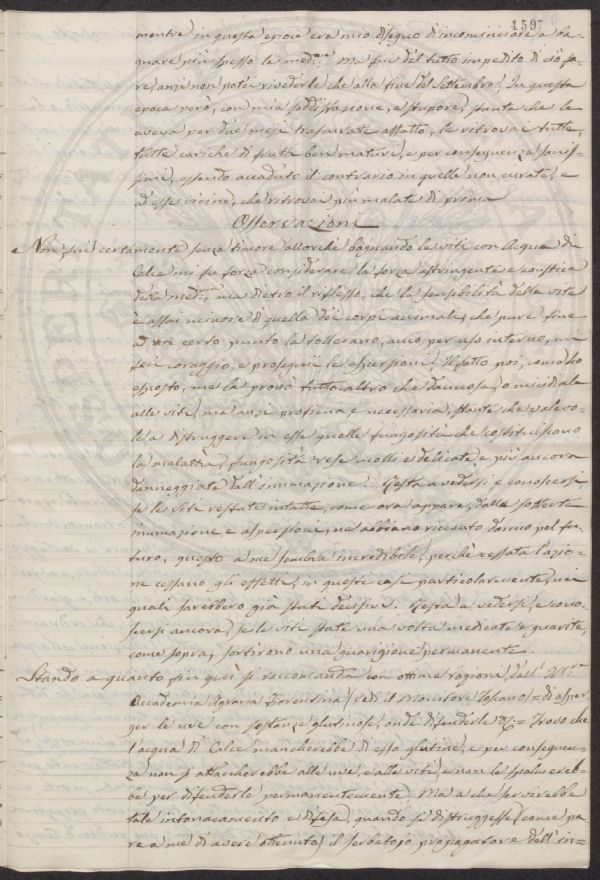 159
mentre in questa epoca era mio disegno di incominciare a ba-
gnare più spesso le med.me Ma fui del tutto impedito di ciò fa-
re, anzi non potei rivederle che alla fine del Settembre. In questa
epoca però, con mia soddisfazione, e stupore, stante che le
aveva per due mesi trascurate affatto, le ritrovai tutte,
tutte cariche di frutti ben maturi, e per conseguenza sanis-
simi, essendo accaduto il contrario in quelle non curate, e
ad esse vicine, che ritrovai più malate di prima
Osservazioni
Non fui certamente senza timore allorchè bagnando le viti con Acqua di
Calce mi fu forza considerare la forza astringente e caustica
della med.ma, ma dietro il riflesso, che la sensibilità della vite
è assai minore di quella dei corpi animali, che pure fino
ad un certo punto la tollerano, anco per uso interno, mi
feci coraggio, e proseguii le aspersioni. Il fatto poi, come ho
esposto, me la provò tutto altro che dannosa, o micidiale
alle viti, ma anzi proficua e necessaria, stante che valevo-
le a distruggere in esse quelle fungosità che costituiscono
la malattia, fungosità rese molli e delicate, e più ancora
danneggiate dall'inumazione. Resta a vedersi, e conoscersi
se le viti restate intatte, come ora appare, dalle sofferte
inumazione e aspersioni, ne abbiano ricevuto danno pel fu-
turo, questo a me sembra incredibile, perchè cessata l'azio-
ne cessano gli effetti, in questi casi particolarmente, nei
quali sarebbero già stati decisivi. Resta a vedersi, e cono-
scersi ancora, se le viti state una volta medicate e guarite,
come sopra, sortirono una guarigione permanente.
Stando a quanto fin qui si raccomanda con ottime ragioni, dall' Ill.e
Accademia Agraria Fiorentina (vedi il Monitore Toscano) = di asper-
ger le uve con sostanze glutinose, onde difenderle &c = Trovo che
l'acqua di Calce mancherebbe di esso glutine, e per conseguen-
za non si attaccherebbe alle uve, e alle viti, e non le spalmereb-
be per difenderle permanentemente. Ma a che servirebbe
tale intonacamento e difesa, quando si distruggesse (come pa-
re a me di avere ottenuto) il serbatojo propagatore dell'in=